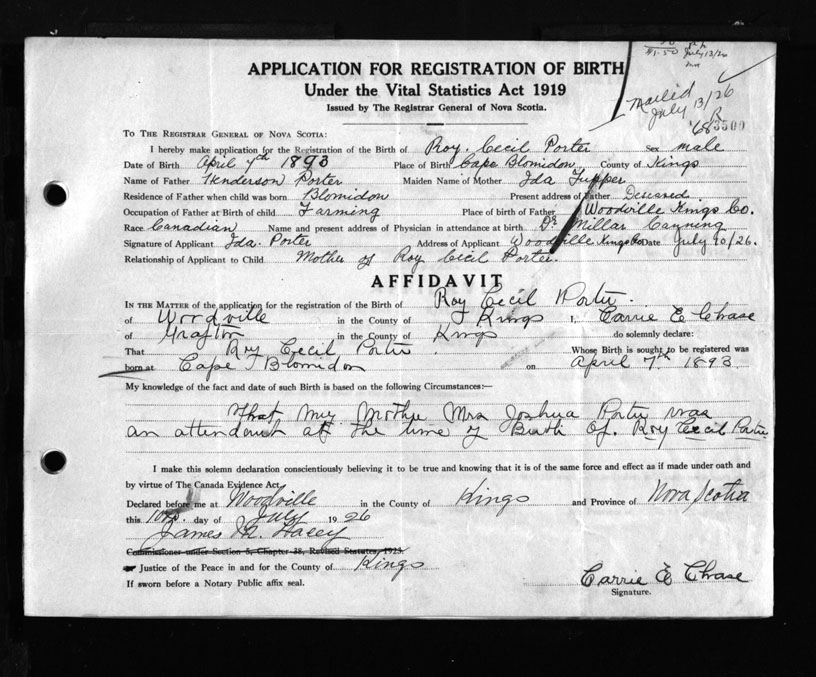 $1.50 July 13/26
APPLICATION FOR REGISTRATION OF BIRTH
Under the Vital Statistics Act 1919
Issued by The Registrar General of Nova Scotia.
Mailed
July 13/26
R
683500
TO THE REGISTRAR GENERAL OF NOVA SCOTIA:
I hereby make application for the Registration of the Birth of Roy Cecil Porter Sex male
Date of Birth April 7th 1893 Place of Birth Cape Blomidon County of Kings
Name of Father Henderson Porter Maiden Name of Mother Ida Tupper
Residence of Father when child was born Blomidon Present address of Father Deceased
Occupation of Father at Birth of child Farming Place of birth of Father Woodville Kings Co.
Race Canadian Name and present address of Physician in attendance at birth Dr Millar Canning
Signature of Applicant Ida Porter Address of Applicant Woodville Kings Co Date July 10/26.
Relationship of Applicant to Child Mother of Roy Cecil Porter.
AFFIDAVIT
IN THE MATTER of the application for the registration of the Birth of Roy Cecil Porter
of Woodville in the County of Kings I, Carrie E Chase
of Grafton in the County of Kings do solemnly declare:
That Roy Cecil Porter Whose Birth is sought to be registered was
born at Cape Blomidon on April 7th 1893.
My knowledge of the fact and date of such Birth is based on the following Circumstances:—
That my Mother Mrs Joshua Porter was
an attendant at the time of Birth of. Roy Cecil Porter
I make this solemn declaration conscientiously believing it to be true and knowing that it is of the same force and effect as if made under oath and
by virtue of The Canada Evidence Act.
Declared before me at Woodville in the County of Kings and Province of Nova Scotia
this 10th. day of July 1926
James M. Lacey
Commissioner under Section 5, Chapter 38, Revised Statutes, 1923.
or Justice of the Peace in and for the County of Kings
If sworn before a Notary Public affix seal.
Carrie E Chase
Signature.